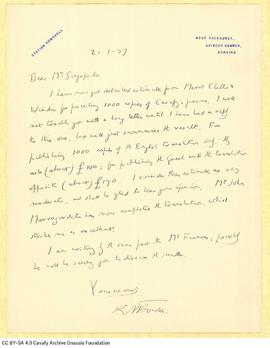 STATION GOMSHALL
WEST HACKHURST,
ABINGER HAMMER,
DORKING.
21-1-37
Dear Mr Singopoulo
I have now got detailed estimates from Messrs Chatto &
Windus for printing 1000 copies of Cavafy's poems. I will
not trouble you with a long letter until I have had a reply
to this one, but will just summarise the result. For
publishing 1000 copies of the English translation only they
ask (about) £100; for publishing the Greek with the translation
opposite (about) £190. I consider these estimates as very
moderate, and shall be glad to hear your opinion. Mr John
Mavrogordato has now completed the translation, which
strikes me as excellent.
I am writing by the same post to Mr Furness; possibly
he will be seeing you to discuss the matter.
Yours sincerely
EM Forster
CC BY-SA 4.0 Cavafy Archive Onassis Foundation